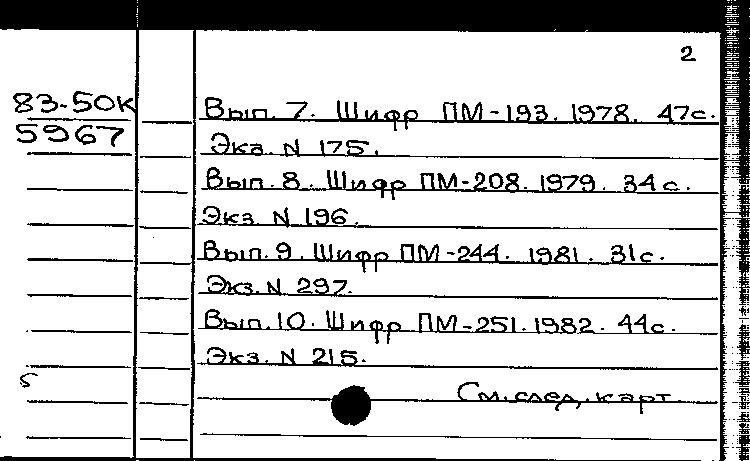 2
83-50К
5967
Вып. 7. Шифр ПМ-193. 1978. 47с.
Экз. N 175.
Вып. 8. Шифр ПМ-208. 1979. 34с.
Экз. N 196.
Вып. 9. Шифр ПМ-244. 1981. 31с.
Экз. N 297.
Вып. 10. Шифр ПМ-251. 1982. 44с.
Экз. N 215.
См. след. карт.